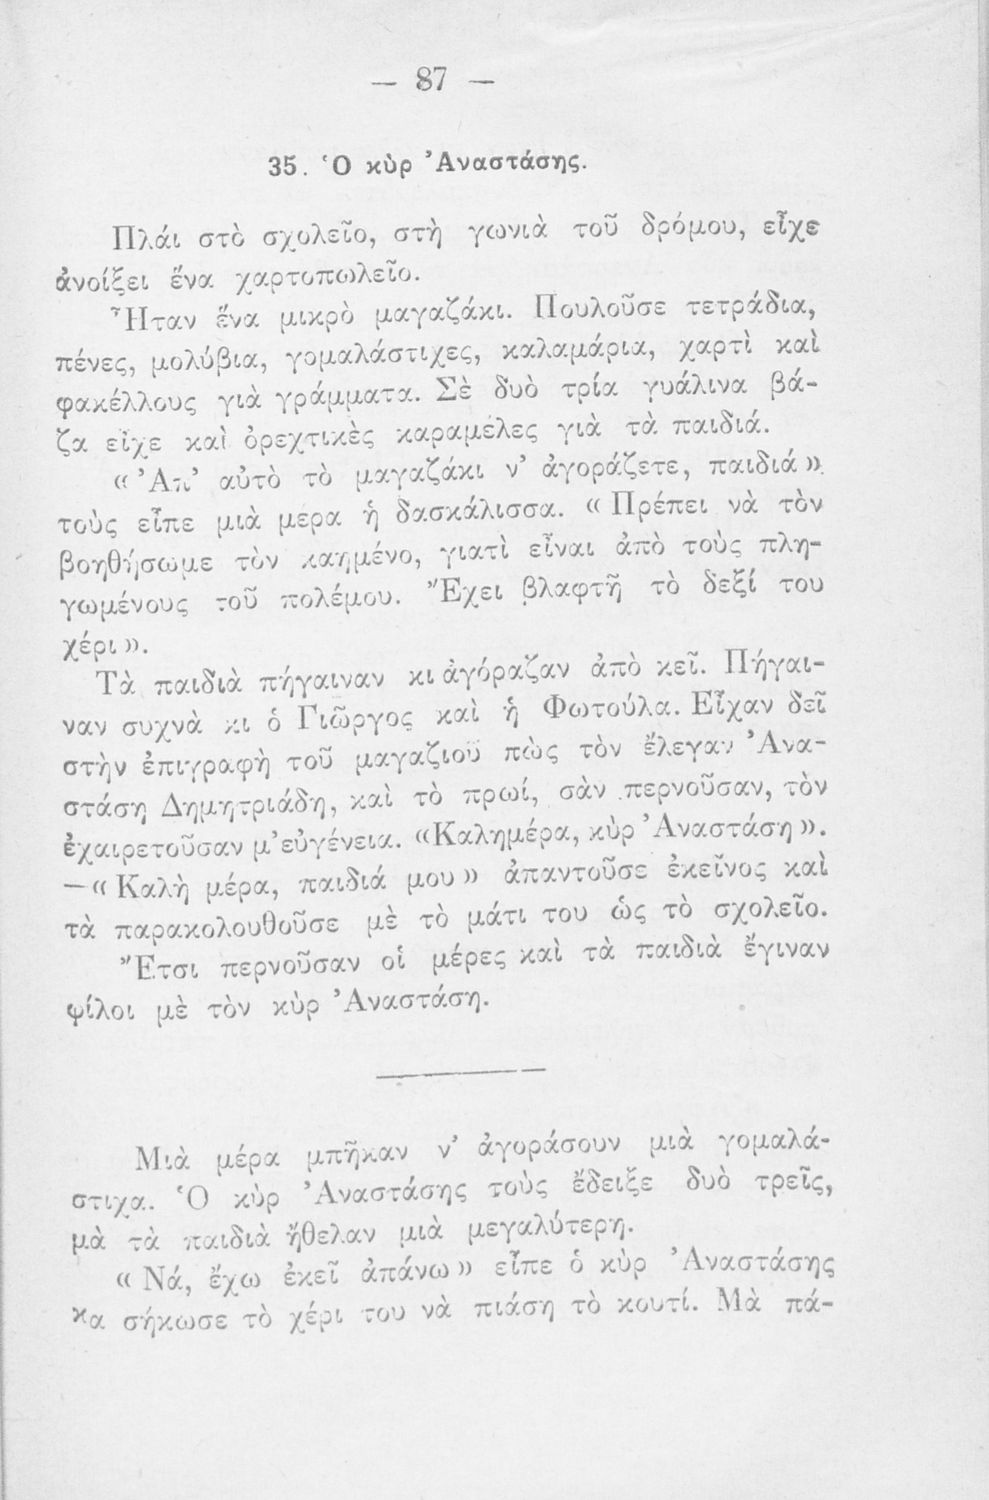 — 87 —
35. Ὁ κὺρ Ἀναστάσης.
Πλάι στὸ σχολεῖο, στὴ γωνιὰ τοῦ δρόμου, εἶχε
ἀνοίξει ἕνα χαρτοπωλεῖο.
Ἦταν ἕνα μικρὸ μαγαζάκι. Πουλοῦσε τετράδια,
πένες, μολύβια, γομαλάστιχες, καλαμάρια, χαρτὶ καὶ
φακέλλους γιὰ γράμματα. Σὲ δυὸ τρία γυάλινα βά-
ζα εἶχε καὶ ὀρεχτικὲς καραμέλες γιὰ τὰ παιδιά.
« Ἀπ’ αὐτὸ τὸ μαγαζάκι ν’ ἀγοράζετε, παιδιά »
τοὺς εἶπε μιὰ μέρα ἡ δασκάλισσα. « Πρέπει νὰ τὸν
βοηθήσωμε τὸν καημένο, γιατὶ εἶναι ἀπὸ τοὺς πλη-
γωμένους τοῦ πολέμου. Ἔχει βλαφτῆ τὸ δεξί του
χέρι ».
Τὰ παιδιὰ πήγαιναν κι ἀγόραζαν ἀπὸ κεῖ. Πήγαι-
ναν συχνὰ κι ὁ Γιῶργος καὶ ἡ Φωτούλα. Εἶχαν δεῖ
στὴν ἐπιγραφὴ τοῦ μαγαζιοῦ πὼς τὸν ἔλεγαν Ἀνα-
στάση Δημητριάδη, καὶ τὸ πρωί, σὰν περνοῦσαν, τὸν
ἐχαιρετοῦσαν μ’ εὐγένεια. «Καλημέρα, κὺρ Ἀναστάση ».
— « Καλὴ μέρα, παιδιά μου » ἀπαντοῦσε ἐκεῖνος καὶ
τὰ παρακολουθοῦσε μὲ τὸ μάτι του ὡς τὸ σχολεῖο.
Ἔτσι περνοῦσαν οἱ μέρες καὶ τὰ παιδιὰ ἔγιναν
φίλοι μὲ τὸν κὺρ Ἀναστάση.
Μιὰ μέρα μπῆκαν ν’ ἀγοράσουν μιὰ γομαλά-
στιχα. Ὁ κὺρ Ἀναστάσης τοὺς ἔδειξε δυὸ τρεῖς,
μὰ τὰ παιδιὰ ἤθελαν μιὰ μεγαλύτερη.
« Νά, ἔχω ἐκεῖ ἀπάνω » εἶπε ὁ κὺρ Ἀναστάσης
κα σήκωσε τὸ χέρι του νὰ πιάση τὸ κουτί. Μὰ πά-